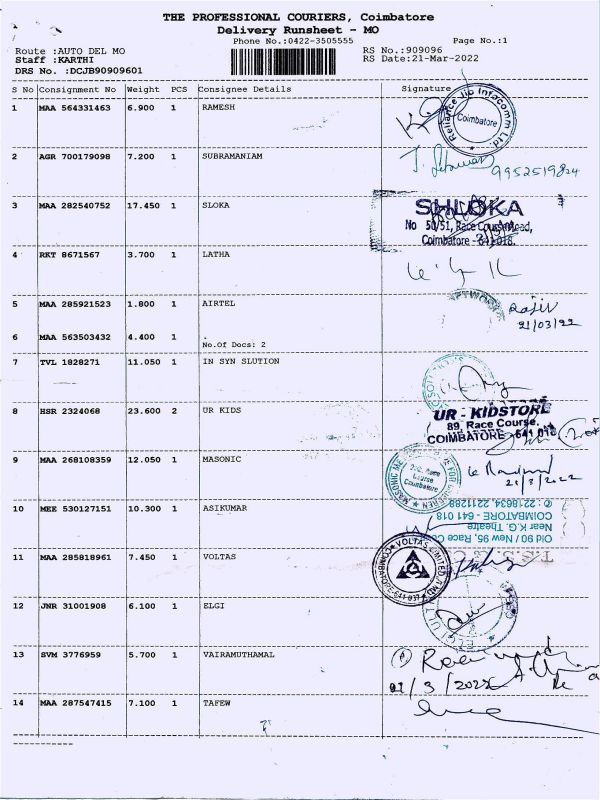 THE PROFESSIONAL COURIERS, Coimbatore
Delivery Runsheet - MO
Phone No.:0422-3505555 Page No.:1
Route :AUTO DEL MO RS No.:909096
Staff :KARTHI RS Date:21-Mar-2022
DRS No. :DCJB90909601
S No Consignment No Weight PCS Consignee Details Signature
1 MAA 564331463 6.900 1 RAMESH
Reliance Jio Infocomm Ltd.
Coimbatore
2 AGR 700179098 7.200 1 SUBRAMANIAM
9952519824
3 MAA 282540752 17.450 1 SLOKA
SHLOKA
No 50/51, Race Course Road,
Coimbatore - 641 018.
4 RKT 8671567 3.700 1 LATHA
5 MAA 285921523 1.800 1 AIRTEL
21/03/22
6 MAA 563503432 4.400 1
No.Of Docs: 2
7 TVL 1828271 11.050 1 IN SYN SLUTION
8 HSR 2324068 23.600 2 UR KIDS
UR - KIDSTORE
89, Race Course,
COIMBATORE - 641 018
9 MAA 268108359 12.050 1 MASONIC
Race
Course
Coimbatore
21/3/2022
10 MEE 530127151 10.300 1 ASIKUMAR
Old 90 / New 95, Race
Near K.G. Theatre
COIMBATORE - 641 018
✆ : 2218634, 2211288
11 MAA 285818961 7.450 1 VOLTAS
VOLTAS LIMITED
COIMBATORE-641 037
12 JNR 31001908 6.100 1 ELGI
13 SVM 3776959 5.700 1 VAIRAMUTHAMAL
21/3/2022
14 MAA 287547415 7.100 1 TAFEW